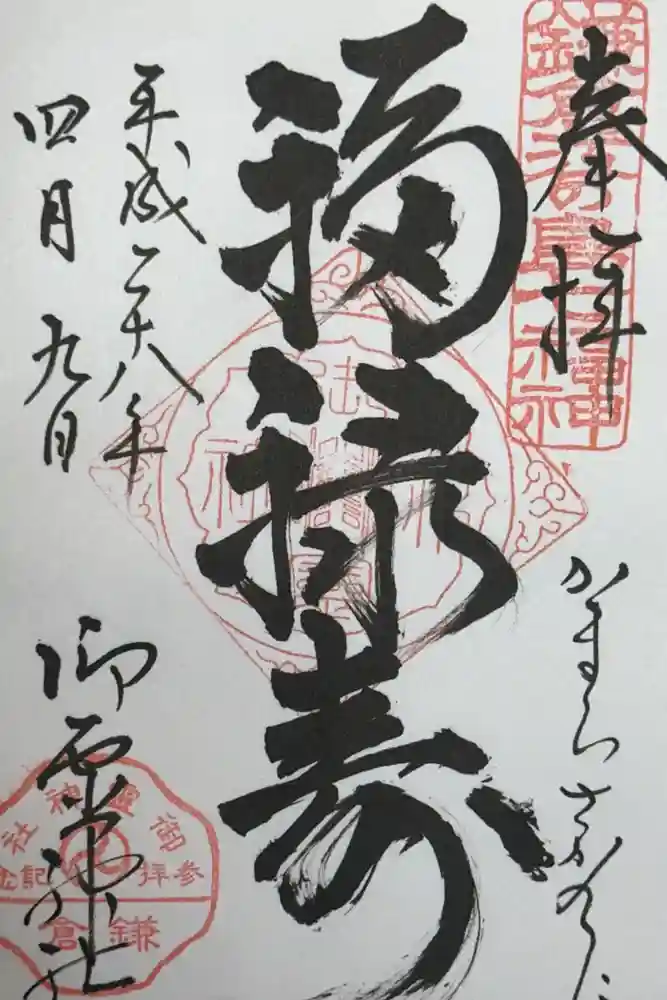 奉拝
かまくらさかのした
福禄寿
平成二十八年
四月九日
御霊神社
御霊神社
参拝記念
鎌倉